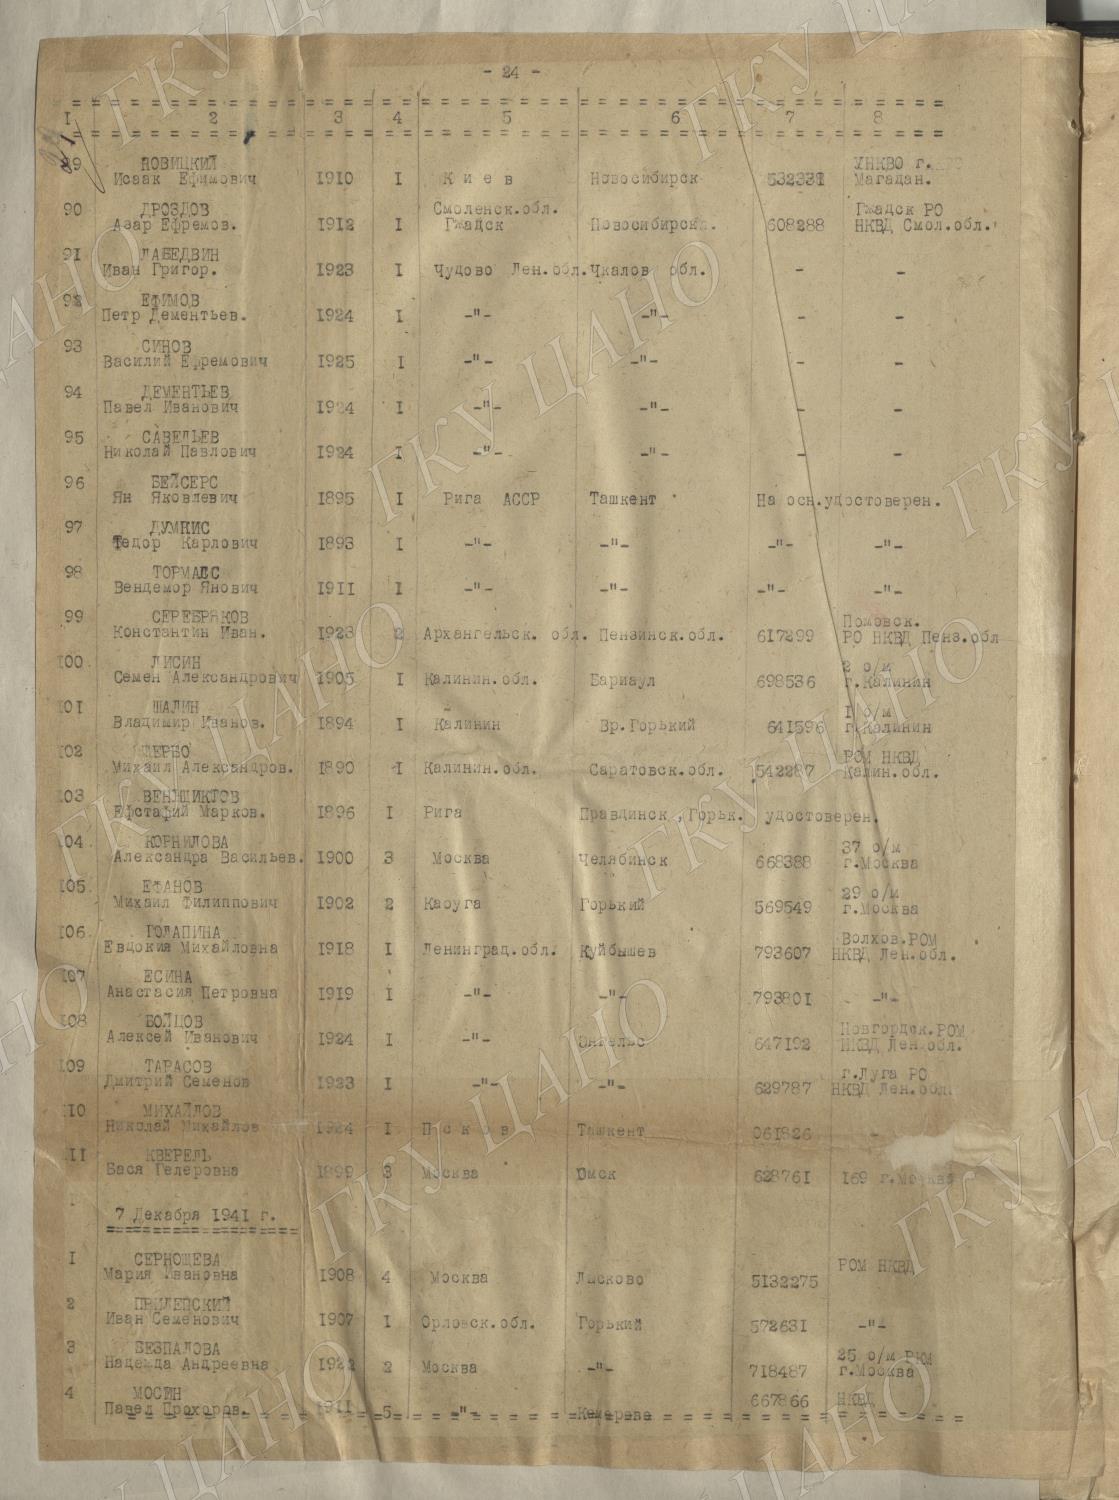 - 24 -
I 2 3 4 5 6 7 8
89 НОВИЦКИЙ УНКВО г.
Исаак Ефимович 1910 I Киев Новосибирск 532331 Магадан.
90 ДРОЗДОВ Смоленск.обл. Гжадск РО
Азар Ефремов. 1912 I Гжадск Новосибирск. 608288 НКВД Смол.обл.
91 ЛАБЕДВИН
Иван Григор. 1923 I Чудово Лен.обл.Чкалов обл. - -
92 ЕФИМОВ
Петр Дементьев. 1924 I -"- -"- - -
93 СИНОВ
Василий Ефремович 1925 I -"- -"- - -
94 ДЕМЕНТЬЕВ
Павел Иванович 1924 I -"- -"- - -
95 САВЕЛЬЕВ
Николай Павлович 1924 I -"- -"- - -
96 БЕЙСЕРС
Ян Яковлевич 1895 I Рига АССР Ташкент На осн.удостоверен.
97 ДУМКИС
Тедор Карлович 1893 I -"- -"- -"- -"-
98 ТОРМАСС
Вендемор Янович 1911 I -"- -"- -"- -"-
99 СЕРЕБРЯКОВ Помовск.
Константин Иван. 1923 2 Архангельск. обл. Пензинск.обл. 617299 РО НКВД Пенз.обл
100 ЛИСИН 2 о/м
Семен Александрович 1905 I Калинин.обл. Барнаул 698536 г.Калинин
101 ШАЛИН 1 о/м
Владимир Иванов. 1894 I Калинин Вр.Горький 641596 г.Калинин
102 ЩЕРБО РОМ НКВД
Михаил Александров. 1890 I Калинин.обл. Саратовск.обл. 542287 Калин.обл.
103 ВЕНЬЩИКТОВ
Ефстафий Марков. 1896 I Рига Правдинск,Горьк. удостоверен.
104 КОРНИЛОВА 37 о/м
Александра Васильев. 1900 3 Москва Челябинск 668388 г.Москва
105 ЕФАНОВ 29 о/м
Михаил Филиппович 1902 2 Каруга Горький 569549 г.Москва
106 ГОЛАПИНА Волхов.РОМ
Евдокия Михайловна 1918 I Ленинград.обл. Куйбышев 793607 НКВД Лен.обл.
107 ЕСИНА
Анастасия Петровна 1919 I -"- -"- 793801 -"-
108 БОЙЦОВ Новгородск.РОМ
Алексей Иванович 1924 I -"- Энгельс 647192 НКВД Лен.обл.
109 ТАРАСОВ г.Луга РО
Дмитрий Семенов 1923 I -"- -"- 629787 НКВД Лен.обл.
110 МИХАЙЛОВ
Николай Михайлов 1924 I Псков Ташкент 061826 -
111 КВЕРЕЛЬ
Бася Гелеровна 1899 3 Москва Омск 628761 169 г.Москва
7 Декабря 1941 г.
I СЕРНОЩЕВА РОМ НКВД
Мария Ивановна 1908 4 Москва Лысково 5132275
2 ПРИЛЕПСКИЙ
Иван Семенович 1907 I Орловск.обл. Горький 572631 -"-
3 БЕЗПАЛОВА 25 о/м РКМ
Надежда Андреевна 1922 2 Москва -"- 718487 г.Москва
4 МОСИН 667866 НКВД
Павел Прохоров. 1911 5 -"- Кемерева
ГКУ ЦАНО